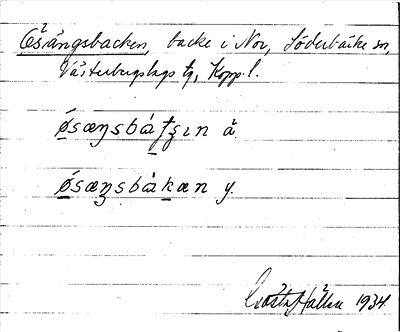 Ösängsbacken, backe i Nor, Söderbärke sn,
Västerbergslags tg, Kopp. l.
ǿsæŋsbáƫʂɩn ä.
ǿsæŋsbákæn y.
Gösta Hallén 1934